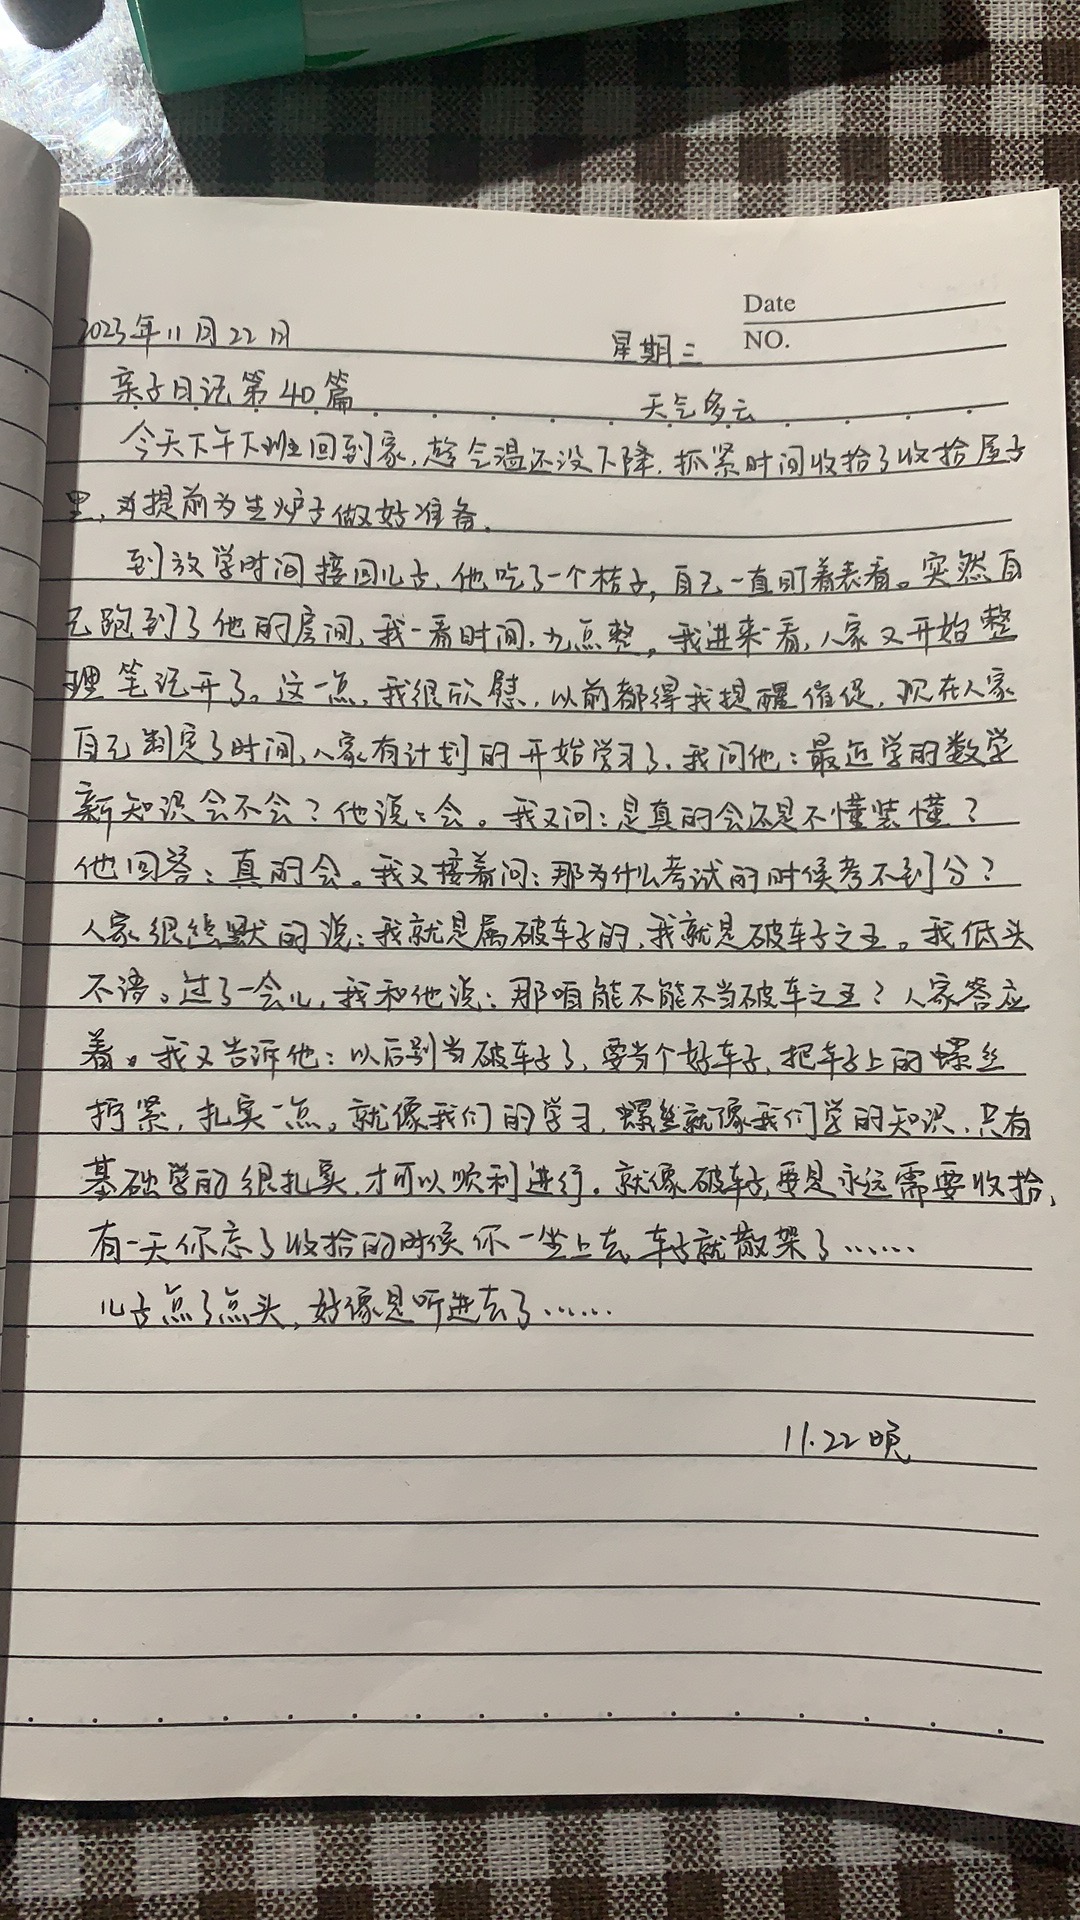 Date
NO.
2023年11月22日 星期三
亲子日记第40篇 天气多云
今天下午下班回到家,趁气温还没下降,抓紧时间收拾了收拾屋子
里,并提前为生炉子做好准备。
到放学时间接回儿子,他吃了一个桔子,自己一直盯着表看。突然自
己跑到了他的房间,我一看时间,九点整。我进来一看,人家又开始整
理笔记开了。这一点,我很欣慰,以前都得我提醒催促,现在人家
自己制定了时间,人家有计划的开始学习了,我问他:最近学的数学
新知识会不会?他说:会。我又问:是真的会还是不懂装懂?
他回答:真的会。我又接着问:那为什么考试的时候考不到分?
人家很幽默的说:我就是属破车子的,我就是破车子之王。我低头
不语。过了一会儿,我和他说:那咱能不能不当破车之王?人家答应
着。我又告诉他:以后别当破车子了,要当个好车子,把车子上的螺丝
拧紧,扎实一点。就像我们的学习,螺丝就像我们学的知识,只有
基础学的很扎实,才可以顺利进行。就像破车子,要是永远需要收拾,
有一天你忘了收拾的时候你一坐上去,车子就散架了……
儿子点了点头,好像是听进去了……
11.22晚